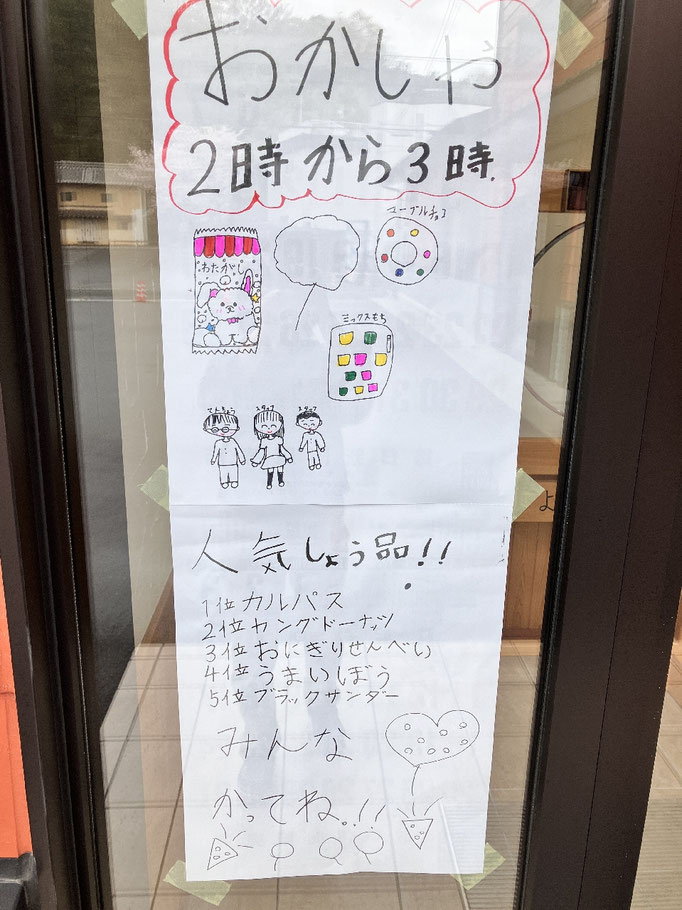 おかしや
2時から3時.
マーブルチョコ
わたがし
ミックスもち
てんちょう
スタッフ
スタッフ
人気しょう品!!
1位カルパス
2位ヤングドーナッツ
3位おにぎりせんべい
4位うまいぼう
5位ブラックサンダー
みんな
かってね。!!
よ